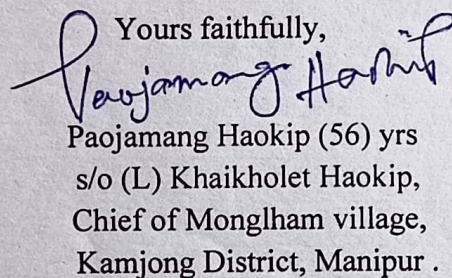 Yours faithfully,
Paojamang Haokip
Paojamang Haokip (56) yrs
s/o (L) Khaikholet Haokip,
Chief of Monglham village,
Kamjong District, Manipur .